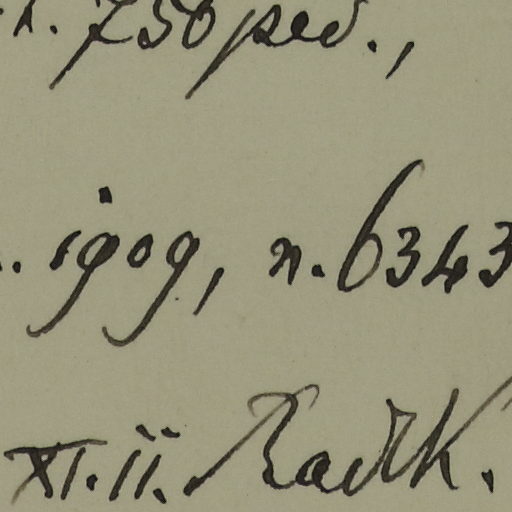 t. 750 ped.,
. 1909, n. 6343
XI.ii. Radlk.